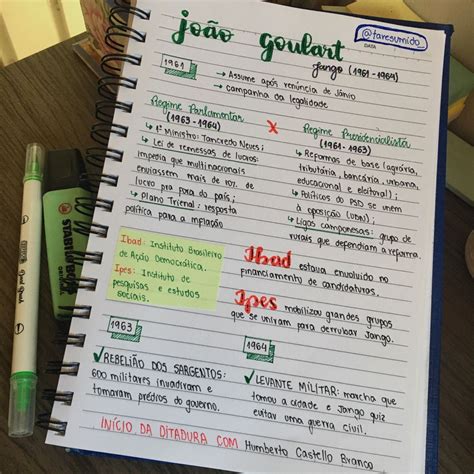 joão Goulart
@taresumido
DATA
Jango (1961-1964)
1961
→ Assume após renúncia de Jânio
→ campanha da legalidade
Regime Parlamentar
(1963-1964)
↳ 1º Ministro: Tancredo Neves;
↳ Lei de remessas de lucros:
impedia que multinacionais
enviassem mais de 10% de
lucro pra fora do país;
↳ Plano Trienal: resposta
política para a inflação
X
Regime Presidencialista
(1961-1963)
↳ Reformas de base (agrária,
tributária, bancária, urbana,
educacional e eleitoral);
↳ Políticos do PSD se unem
à oposição (UDN);
↳ Ligas camponesas: grupo de
rurais que defendiam a reforma.
Ibad: Instituto Brasileiro
de Ação Democrática.
Ipes: Instituto de
pesquisas e estudos
sociais.
Ibad estava envolvido no
financiamento de candidaturas.
Ipes mobilizou grandes grupos
que se uniram para derrubar Jango.
1963
✓ REBELIÃO DOS SARGENTOS:
600 militares invadiram e
tomaram prédios do governo.
1964
✓ LEVANTE MILITAR: marcha que
tomou a cidade e Jango quiz
evitar uma guerra civil.
INÍCIO DA DITADURA COM Humberto Castello Branco
STABILO BOSS